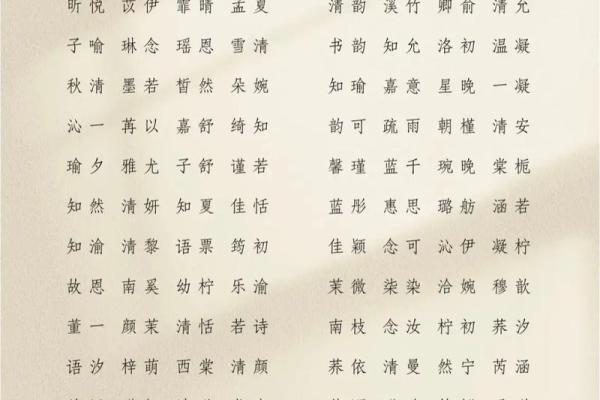 昕悦 苡伊 霏晴 孟夏 清韵 溪竹 卿俞 清允
子喻 琳念 瑶恩 雪清 书韵 知允 洛初 温凝
秋清 墨若 皙然 朵婉 知瑜 嘉意 星晚 一凝
沁一 苒以 嘉舒 绮知 韵可 疏雨 朝槿 清安
瑜夕 雅尤 子舒 谨若 馨瑾 蓝千 琬晚 棠栀
知然 清妍 知夏 佳恬 蓝彤 惠思 璐舫 涵若
知渝 清黎 语票 筠初 佳颖 念可 沁伊 凝柠
故恩 南奚 幼柠 乐渝 茉微 柒染 洽婉 穆歆
董一 颜茉 清恬 若诗 南枝 念汝 柠初 荞汐
语汐 梓萌 西棠 清颜 荞依 清曼 然宁 芮涵